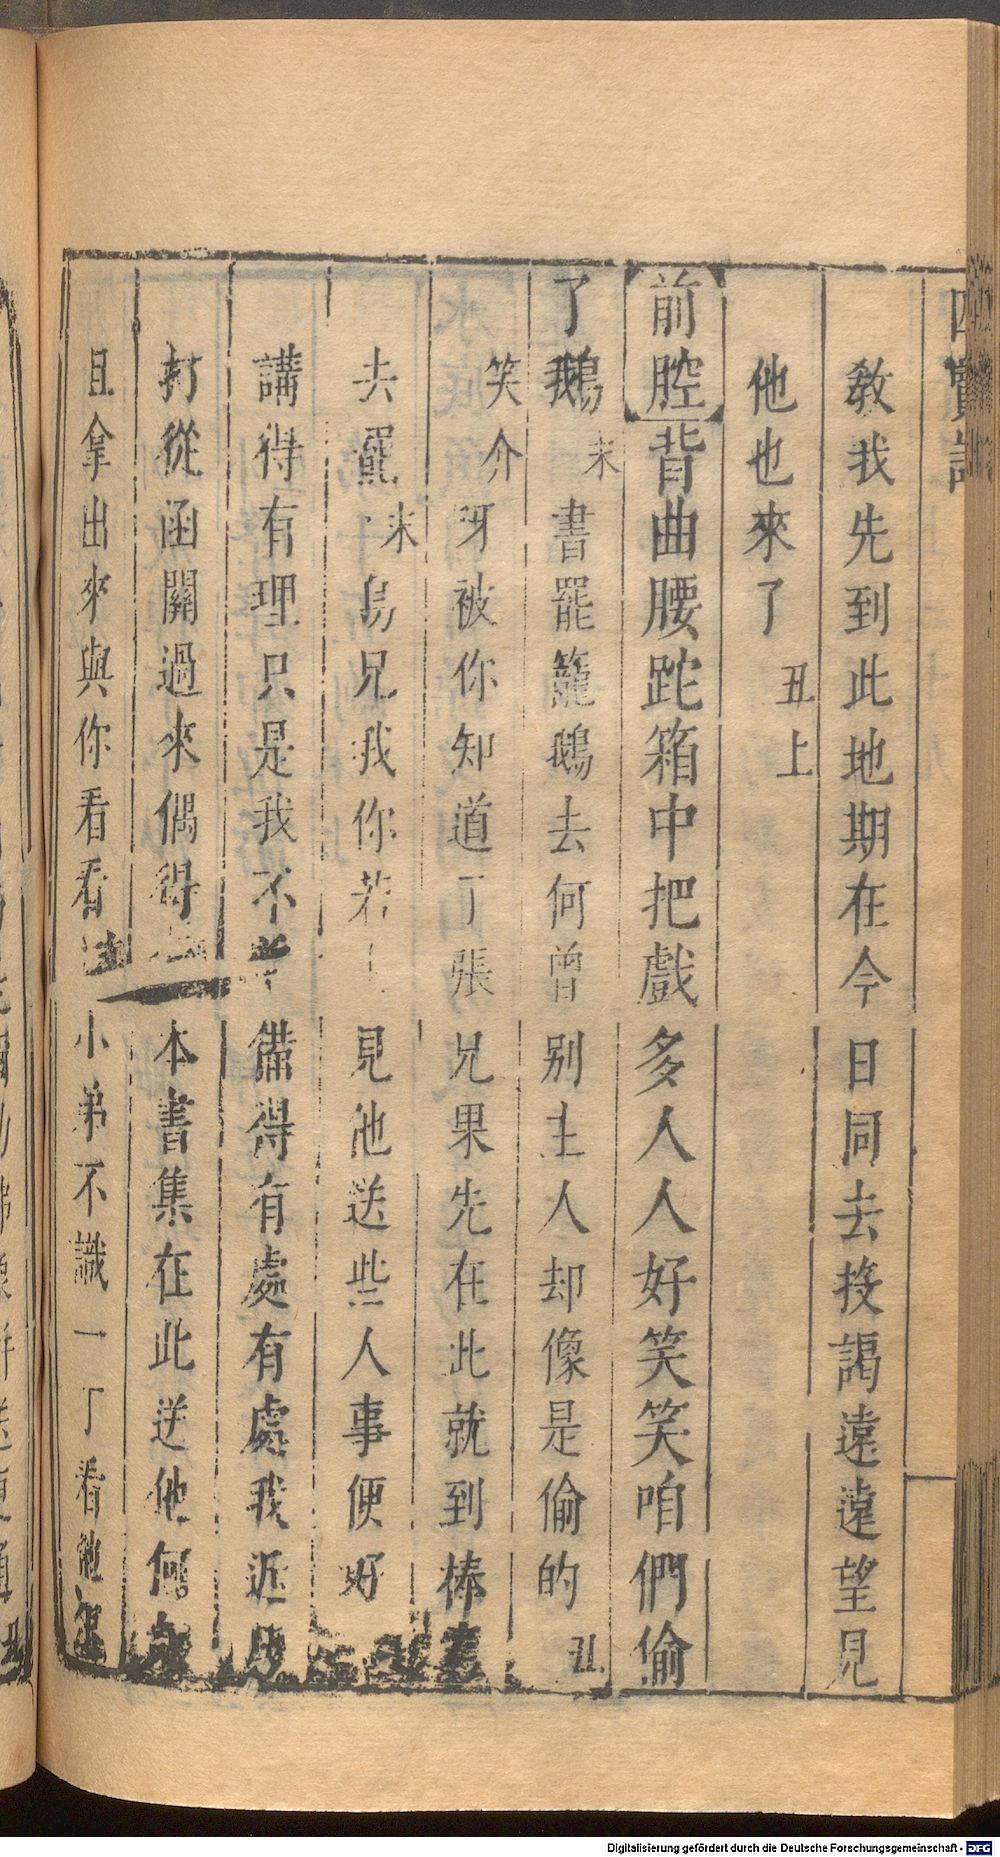 教我先到此地期在今日同去投謁遠遠望見
他也來了 丑上
前腔 背曲腰跎箱中把戲多人人好笑笑咱們偷
了鵝 末 書罷籠鵝去何曾別主人却像是偷的 丑
笑介 呀被你知道了張兄果先在此就到棒
去罷 末 烏兄我你若見他送些人事便好
講得有理只是我不備得有處有處我近
打從函關過來偶得本書集在此送他何
且拿出來與你看看小弟不識一丁看他
Digitalisierung gefördert durch die Deutsche Forschungsgemeinschaft - DFG